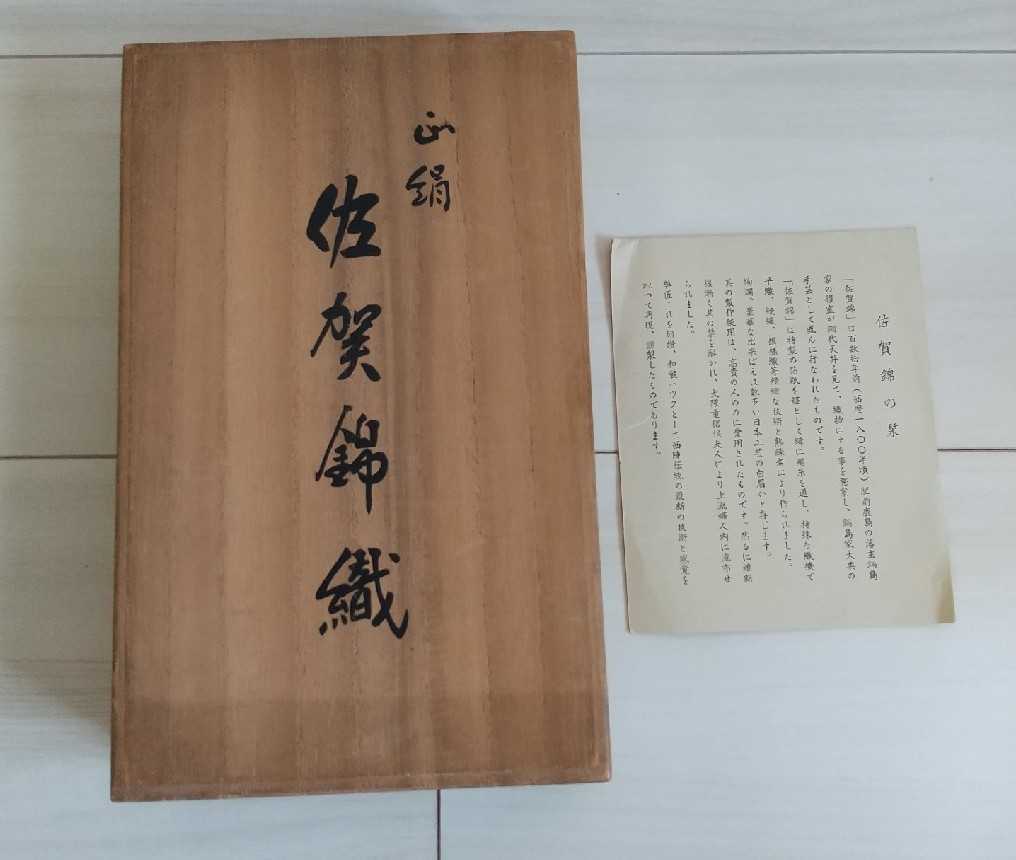 正絹
佐賀錦織
佐賀錦の栞
「佐賀錦」は百数拾年前(西暦一八〇〇年頃)肥前鹿島の藩主鍋島
家の 網代天井を見て、織物にする事を発案し、鍋島家大奥の
手芸として盛んに行なわれたものです。
「佐賀錦」は特製の箔紙を経とし 緯に 糸を通し、特殊な織機で
平織、綾織、模様織等 な技術と熟練者により作られました。
豪華な出来ばえは数多い日本工芸の白眉かと存じます。
其の製作使用は、高貴の人のみに愛用されたものですが 維新
後漸く其の禁を解かれ、大隈重信侯夫人により上流婦人内に広布せ
られました。
和装バッグとして西陣伝統の最新の技術と感覚を
以って再現、謹製したものであります。